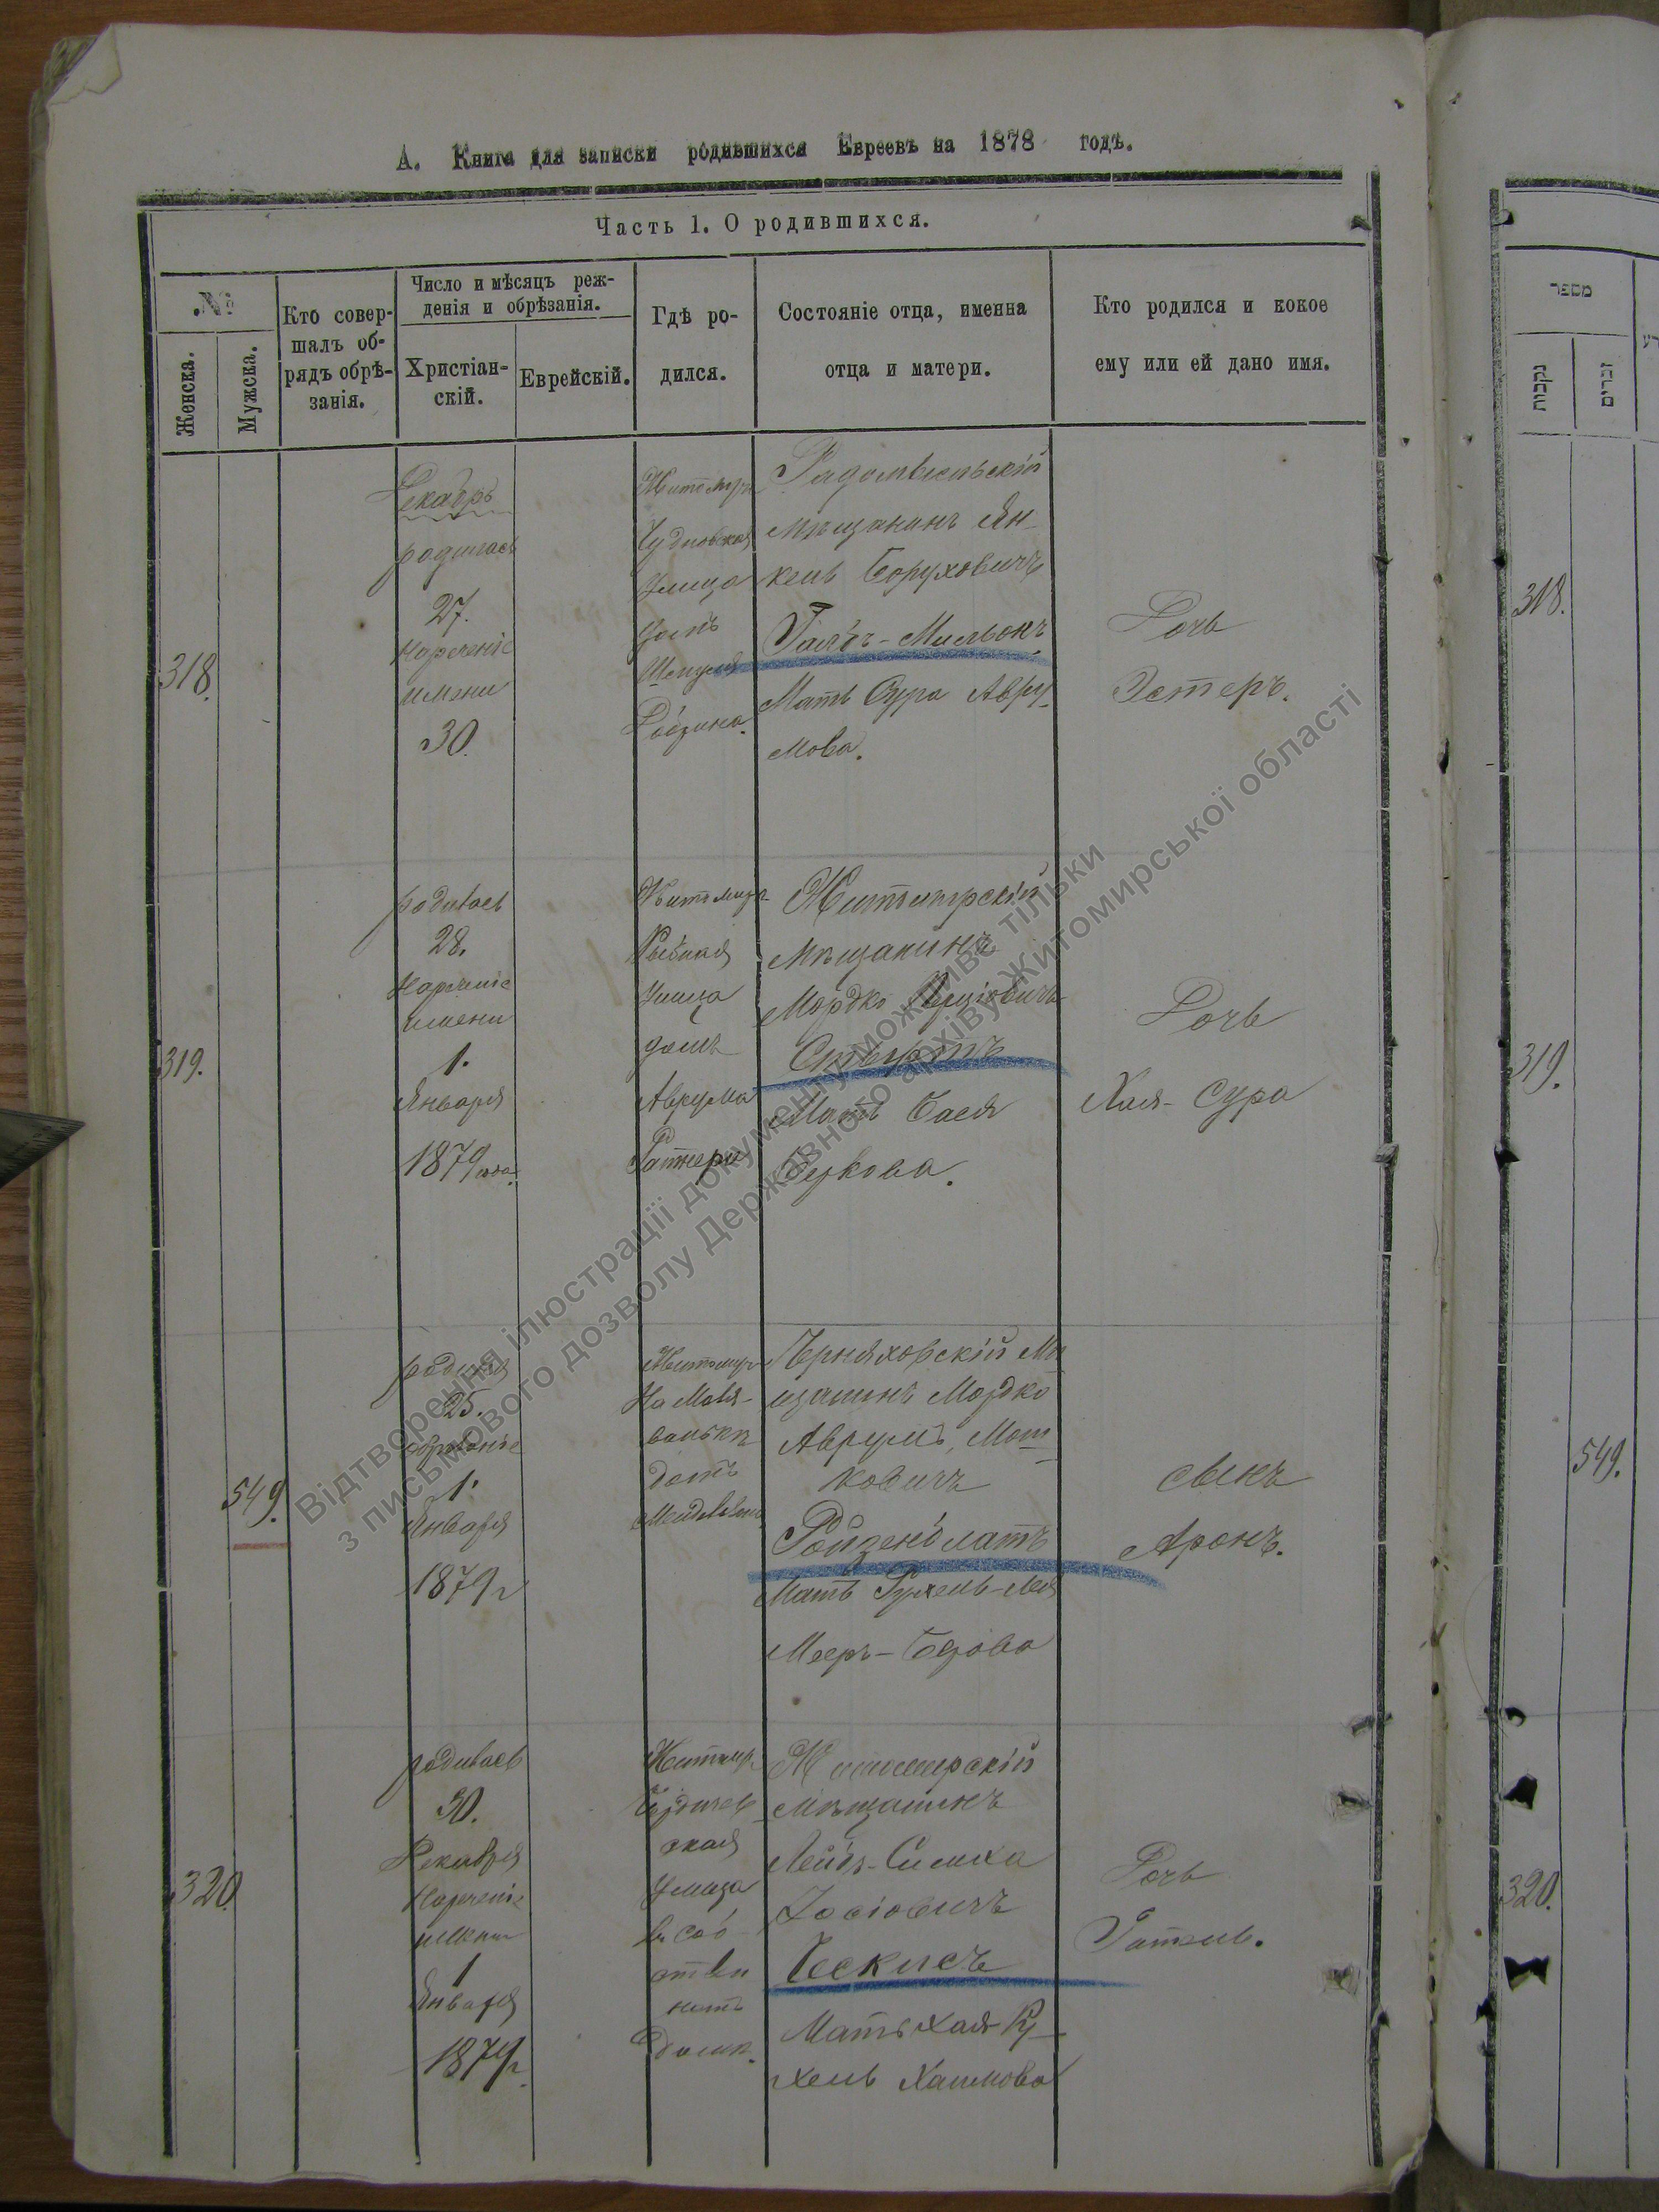 А. Книга для записки родившихся Евреевъ на 1878 годъ.
Часть 1. О родившихся.
№
Женска.
Мужска.
Кто совер-
шалъ об-
рядъ обрѣ-
занія.
Число и мѣсяцъ реж-
денія и обрѣзанія.
Христіан-
скій.
Еврейскій.
Гдѣ ро-
дился.
Состояніе отца, именна
отца и матери.
Кто родился и кокое
ему или ей дано имя.
318.
Декабрь
родилась
27.
Нареченіе
имени
30.
Житомиръ
Чудновская
Улица
домъ
Шмуля
Радомысльскій
мѣщанинъ Ян-
кель Боруховичъ
Мать Сура Авру-
мова.
Дочь
Эстеръ.
319.
родилась
28.
Нареченіе
имени
1.
Января
1879 года.
Житомиръ
Рыбная
Улица
домъ
Аврума
Ратнера
Житомирскій
Мѣщанинъ
Мордко
Мать Бася
Беркова.
Дочь
Хая-Сура
549.
родился
25.
обрѣзаніе
1.
Января
1879 г
Житомиръ
На Маля-
ванкѣ
домъ
Черняховскій Мѣ-
щанинъ Мордко
Аврумъ, Мош-
ковичъ
Ройзенблатъ
Мать Рухель-Лея
Мееръ-Берова
сынъ
Аронъ.
320.
родилась
30.
Декабря
Нареченіе
имени
1
Января
1879 г.
Житомиръ
Бердичев
ская
Улица
въ соб
ствен
номъ
домѣ.
Житомирскій
мѣщанинъ
Лейбъ-Симха
Іосіовичъ
Бескисъ
Мать Хая-Ру-
хель Хаимова
Дочь
מספר
נקבות
זכרים
318.
319.
549.
320.
Відтворення ілюстрації документу можливе тільки
з письмового дозволу Державного архіву Житомирської області